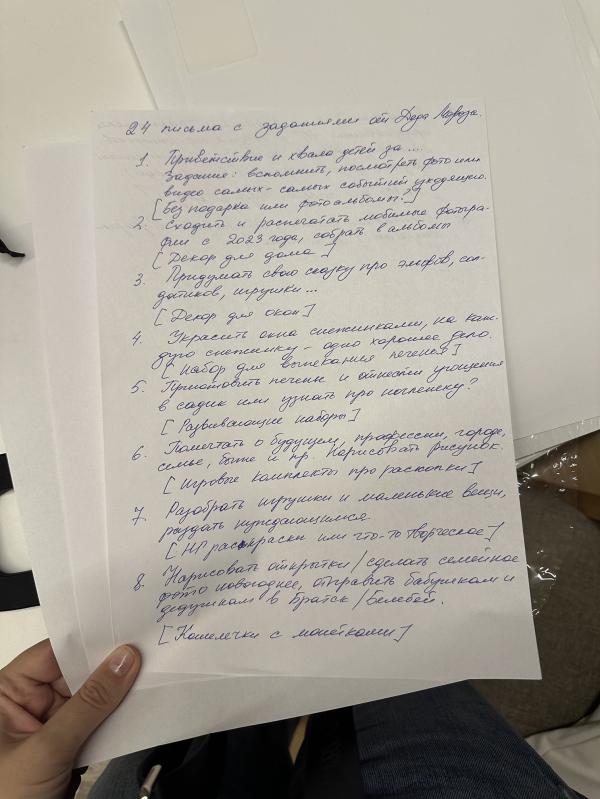 24 письма с заданиями от Деда Мороза.
1. Приветствие и хвала детей за ....
Задание: вспомнить, посмотреть фото или
видео самых-самых событий уходящего.
[Без подарка или фотоальбомы?]
2. Сходить и распечатать любимые фотогра-
фии с 2023 года, собрать в альбомы
[Декор для дома]
3. Придумать свою сказку про эльфов, сол-
датиков, игрушки...
[Декор для окон]
4. Украсить окна снежинками, на каж-
дую снежинку - одно хорошее дело.
[Набор для выпекания печенья]
5. Приготовить печенье и отнести угощения
в садик или узнать про ночлежку?
[Развивающие наборы]
6. Помечтать о будущем, профессии, городе,
семье, быте и пр. Нарисовать рисунок.
[Игровые комплекты про раскопки]
7. Разобрать игрушки и маленькие вещи,
раздать нуждающимся
[НГ раскраски или что-то творческое]
8. Нарисовать открытки/сделать семейное
фото новогоднее, отправить бабушкам и
дедушкам в Братск/Белебей.
[Кошелечки с монетками]